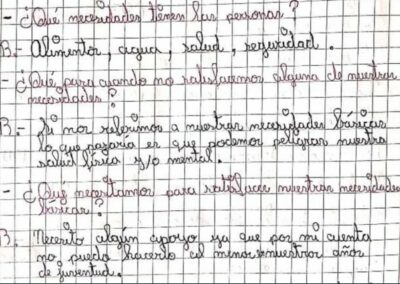 - ¿Qué necesidades tienen las personas?
B.- Alimentos, agua, salud, seguridad.
- ¿Qué pasa cuando no satisfacemos alguna de nuestras
necesidades?
B.- Si nos referimos a nuestras necesidades básicas
lo que pasaria es que podemos peligrar nuestra
salud física y/o mental.
- ¿Que necesitamos para satisfacer nuestras necesidades
básicas?
B. Necesito algún apoyo ya que por mi cuenta
no puedo hacerlo al menos nuestros años
de juventud.